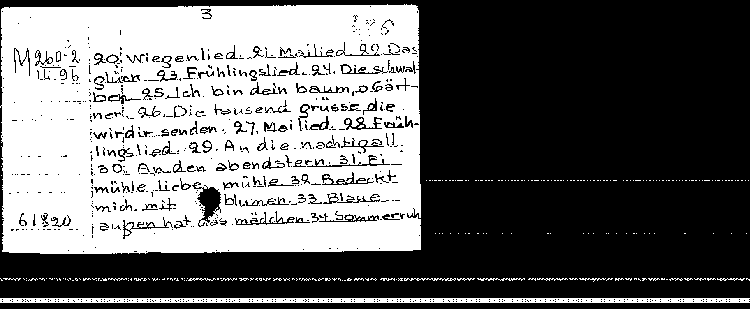 3
M 260.2
14.96
20. Wiegenlied. 21. Mailied 22. Das
glück 23. Frühlingslied. 24. Die schwal-
ben 25. Ich bin dein baum, o Gärt-
ner. 26. Die tausend grüsse, die
wir dir senden. 27. Mailied. 28. Früh-
lingslied. 29. An die nachtigall.
30. An den abendstern. 31. Ei
mühle, liebe mühle 32. Bedeckt
mich mit blumen. 33. Blaue
augen hat das mädchen 34. Sommerruh
61820